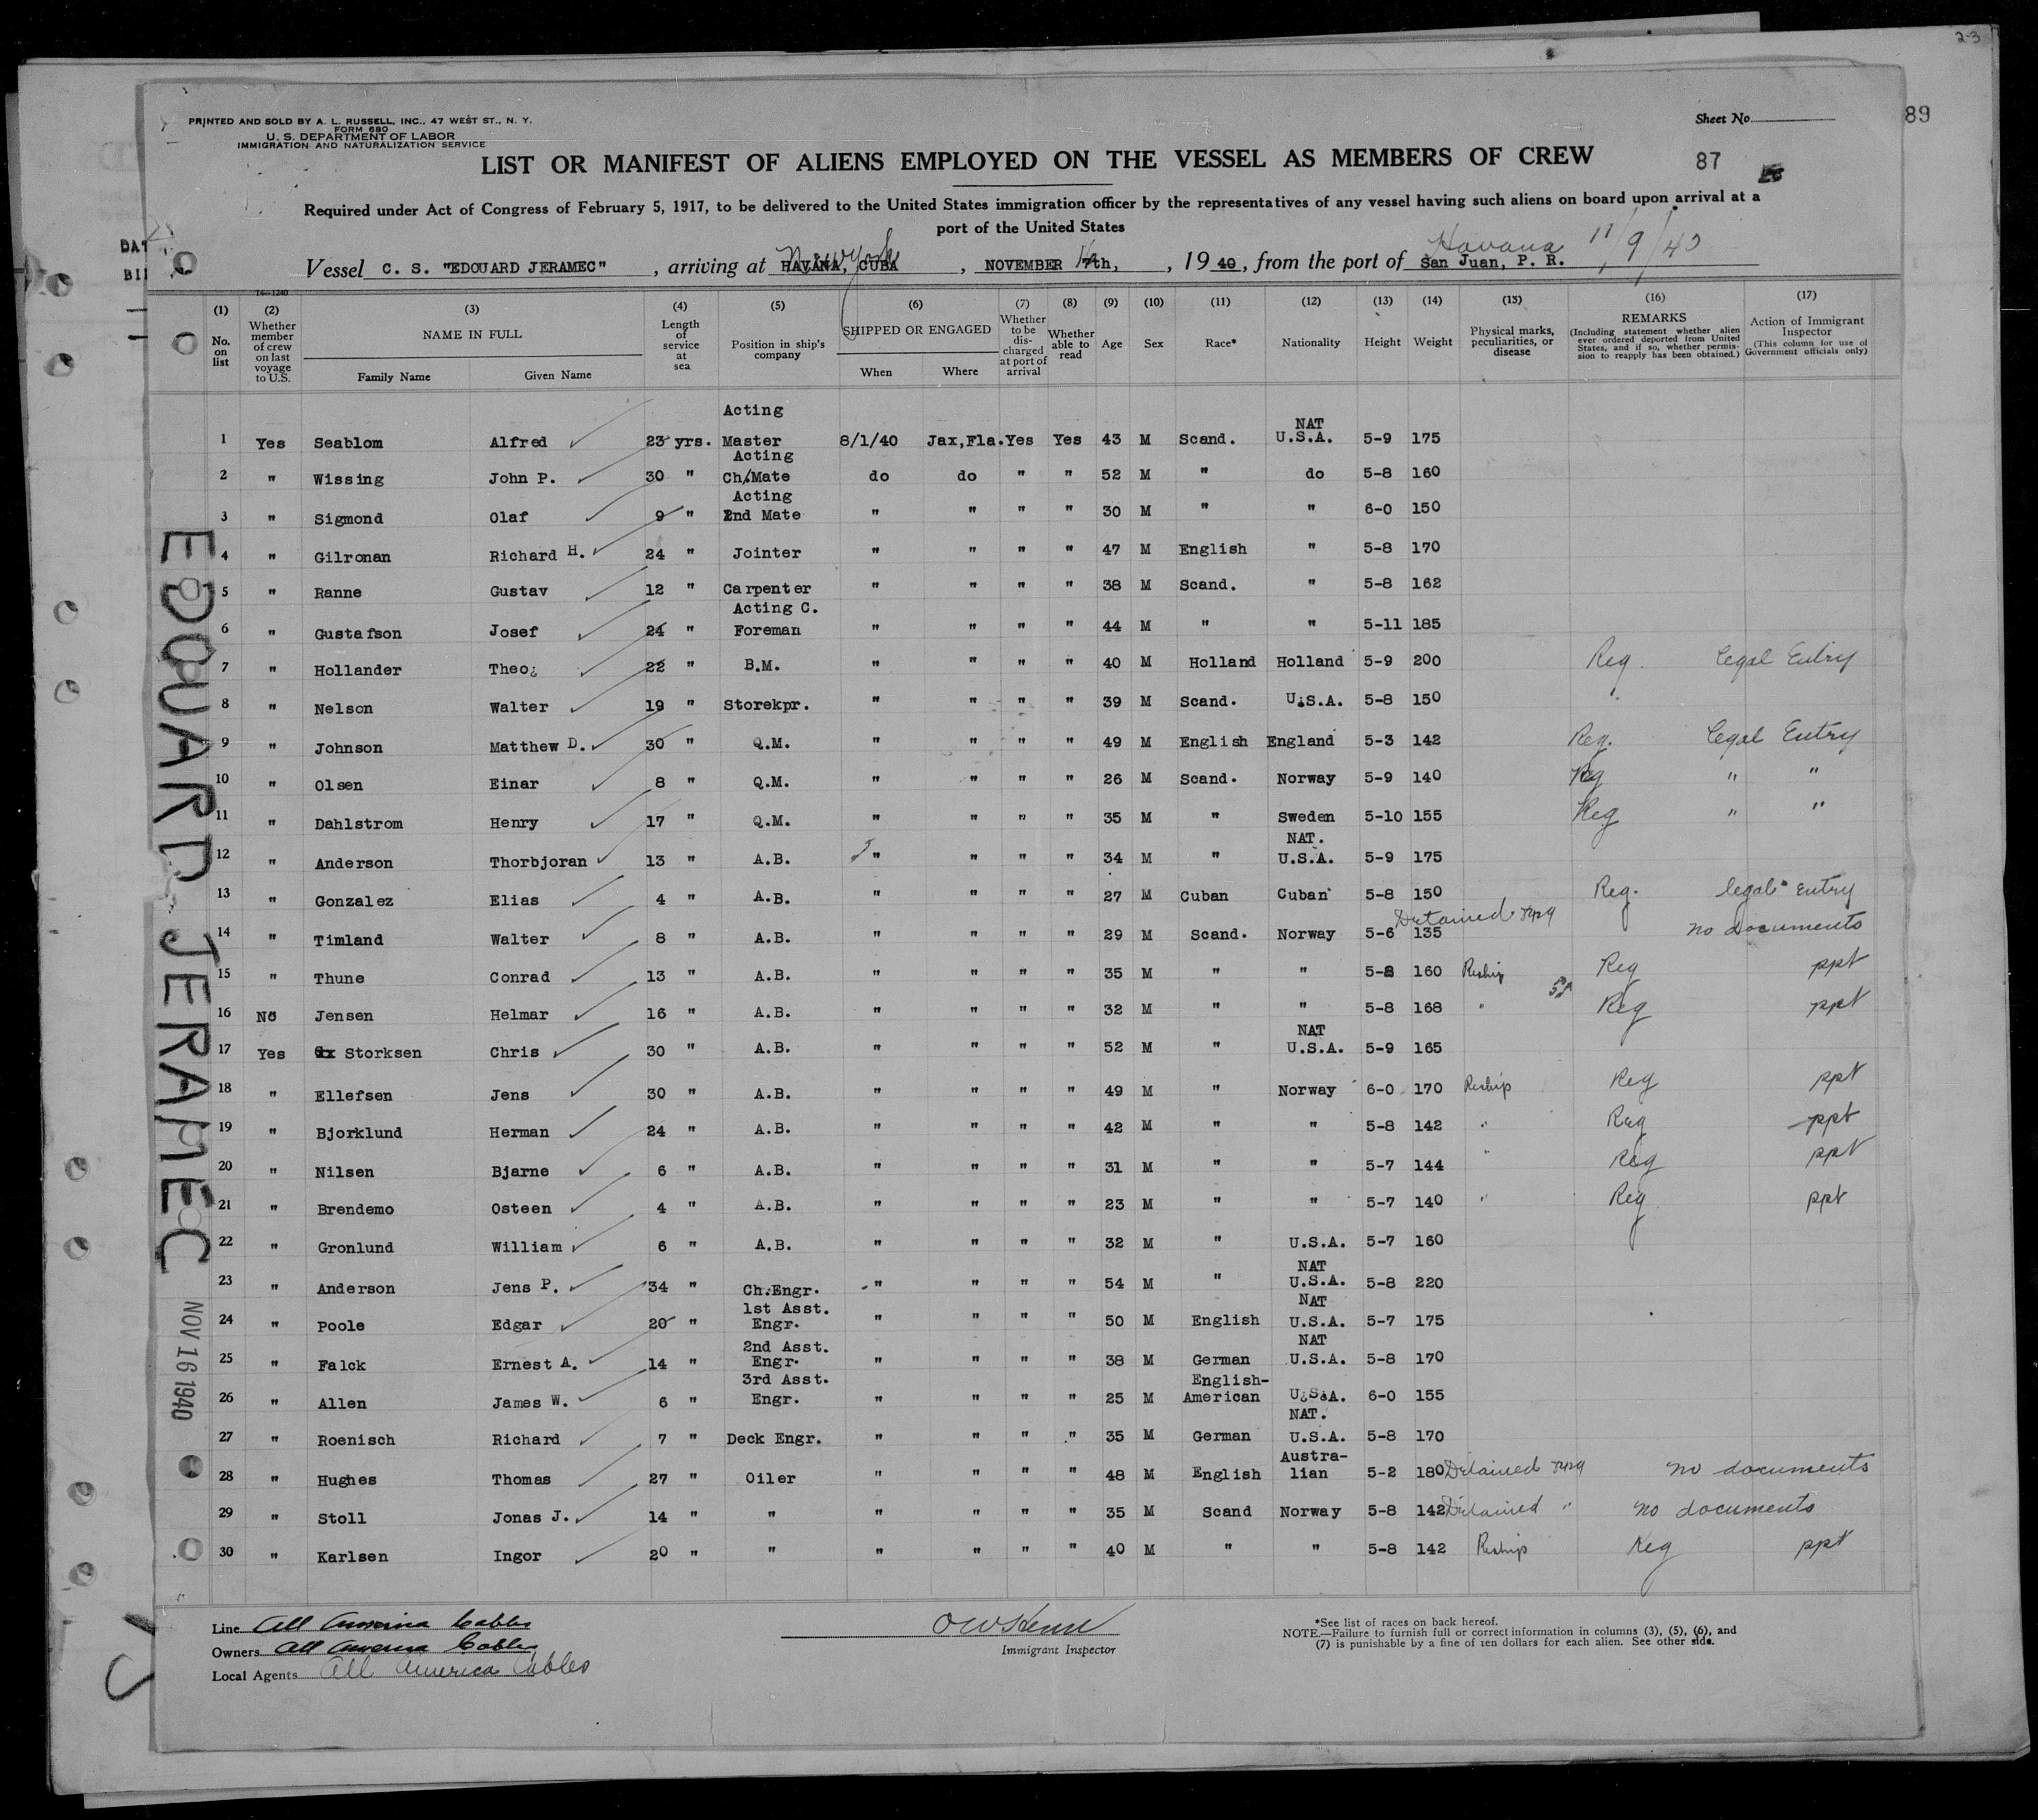 2-3
89
PRINTED AND SOLD BY A. L. RUSSELL, INC., 47 WEST ST., N. Y.
FORM 680
U. S. DEPARTMENT OF LABOR
IMMIGRATION AND NATURALIZATION SERVICE
Sheet No.
LIST OR MANIFEST OF ALIENS EMPLOYED ON THE VESSEL AS MEMBERS OF CREW
87
Required under Act of Congress of February 5, 1917, to be delivered to the United States immigration officer by the representatives of any vessel having such aliens on board upon arrival at a
port of the United States
New York Havana 11/9/40
Vessel C. S. "EDOUARD JERAMEC", arriving at HAVANA, CUBA, NOVEMBER 7th, , 19 40, from the port of San Juan, P. R.
14-1240
(1) (2) (3) (4) (5) (6) (7) (8) (9) (10) (11) (12) (13) (14) (15) (16) (17)
No. on list
Whether member of crew on last voyage to U.S.
NAME IN FULL
Family Name Given Name
Length of service at sea
Position in ship's company
SHIPPED OR ENGAGED
When Where
Whether to be discharged at port of arrival
Whether able to read
Age
Sex
Race*
Nationality
Height
Weight
Physical marks, peculiarities, or disease
REMARKS
(Including statement whether alien ever ordered deported from United States, and if so, whether permission to reapply has been obtained.)
Action of Immigrant Inspector
(This column for use of Government officials only)
1 Yes Seablom Alfred 23 yrs. Acting Master 8/1/40 Jax,Fla. Yes Yes 43 M Scand. NAT U.S.A. 5-9 175
2 " Wissing John P. 30 " Acting Ch/Mate do do " " 52 M " do 5-8 160
3 " Sigmond Olaf 9 " Acting 2nd Mate " " " " 30 M " " 6-0 150
4 " Gilronan Richard H. 24 " Jointer " " " " 47 M English " 5-8 170
5 " Ranne Gustav 12 " Carpenter " " " " 38 M Scand. " 5-8 162
6 " Gustafson Josef 24 " Acting C. Foreman " " " " 44 M " " 5-11 185
7 " Hollander Theo. 22 " B.M. " " " " 40 M Holland Holland 5-9 200 Reg. legal Entry
8 " Nelson Walter 19 " Storekpr. " " " " 39 M Scand. U.S.A. 5-8 150
9 " Johnson Matthew D. 30 " Q.M. " " " " 49 M English England 5-3 142 Reg. legal Entry
10 " Olsen Einar 8 " Q.M. " " " " 26 M Scand. Norway 5-9 140 Reg " "
11 " Dahlstrom Henry 17 " Q.M. " " " " 35 M " Sweden 5-10 155 Reg " "
12 " Anderson Thorbjoran 13 " A.B. " " " " 34 M " NAT. U.S.A. 5-9 175
13 " Gonzalez Elias 4 " A.B. " " " " 27 M Cuban Cuban 5-8 150 Reg. legal entry
14 " Timland Walter 8 " A.B. " " " " 29 M Scand. Norway 5-6 135 Detained no documents
15 " Thune Conrad 13 " A.B. " " " " 35 M " " 5-8 160 Reship Reg ppt
16 No Jensen Helmar 16 " A.B. " " " " 32 M " " 5-8 168 " Reg ppt
17 Yes Storksen Chris 30 " A.B. " " " " 52 M " NAT U.S.A. 5-9 165
18 " Ellefsen Jens 30 " A.B. " " " " 49 M " Norway 6-0 170 Reship Reg ppt
19 " Bjorklund Herman 24 " A.B. " " " " 42 M " " 5-8 142 " Reg ppt
20 " Nilsen Bjarne 6 " A.B. " " " " 31 M " " 5-7 144 " Reg ppt
21 " Brendemo Osteen 4 " A.B. " " " " 23 M " " 5-7 140 " Reg ppt
22 " Gronlund William 6 " A.B. " " " " 32 M " U.S.A. 5-7 160
23 " Anderson Jens P. 34 " Ch.Engr. " " " " 54 M " NAT U.S.A. 5-8 220
24 " Poole Edgar 20 " 1st Asst. Engr. " " " " 50 M English NAT U.S.A. 5-7 175
25 " Falck Ernest A. 14 " 2nd Asst. Engr. " " " " 38 M German NAT U.S.A. 5-8 170
26 " Allen James W. 6 " 3rd Asst. Engr. " " " " 25 M English-American U.S.A. 6-0 155
27 " Roenisch Richard 7 " Deck Engr. " " " " 35 M German NAT. U.S.A. 5-8 170
28 " Hughes Thomas 27 " Oiler " " " " 48 M English Australian 5-2 180 Detained no documents
29 " Stoll Jonas J. 14 " " " " " " 35 M Scand Norway 5-8 142 Detained " no documents
30 " Karlsen Ingor 20 " " " " " " 40 M " " 5-8 142 Reship Reg ppt
EDOUARD JERAMEC
NOV 16 1940
Line All America Cables
Owners All America Cables
Local Agents All America Cables
Immigrant Inspector
*See list of races on back hereof.
NOTE.—Failure to furnish full or correct information in columns (3), (5), (6), and
(7) is punishable by a fine of ten dollars for each alien. See other side.